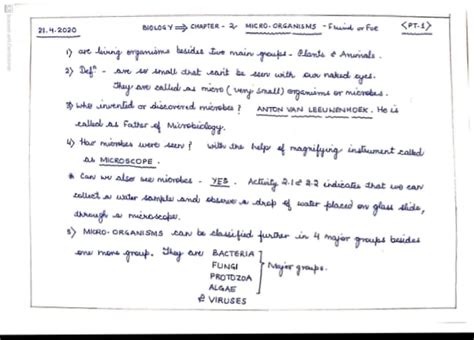 21.4.2020 BIOLOGY ⇒ CHAPTER - 2 MICRO-ORGANISMS - Friend or Foe <PT.1>
1) are living organisms besides two main groups - Plants & Animals.
2) Defⁿ - are so small that can't be seen with our naked eyes.
They are called as micro (very small) organisms or microbes.
3) Who invented or discovered microbes? ANTON VAN LEEUWENHOEK. He is
called as Father of Microbiology.
4) How microbes were seen? With the help of magnifying instrument called
as MICROSCOPE.
* Can we also see microbes - YES. Activity 2.1 & 2.2 indicates that we can
collect a water sample and observe a drop of water placed on glass slide,
through a microscope.
5) MICRO-ORGANISMS can be classified further in 4 major groups besides
one more group. They are BACTERIA
FUNGI
PROTOZOA
ALGAE
Major groups.
& VIRUSES